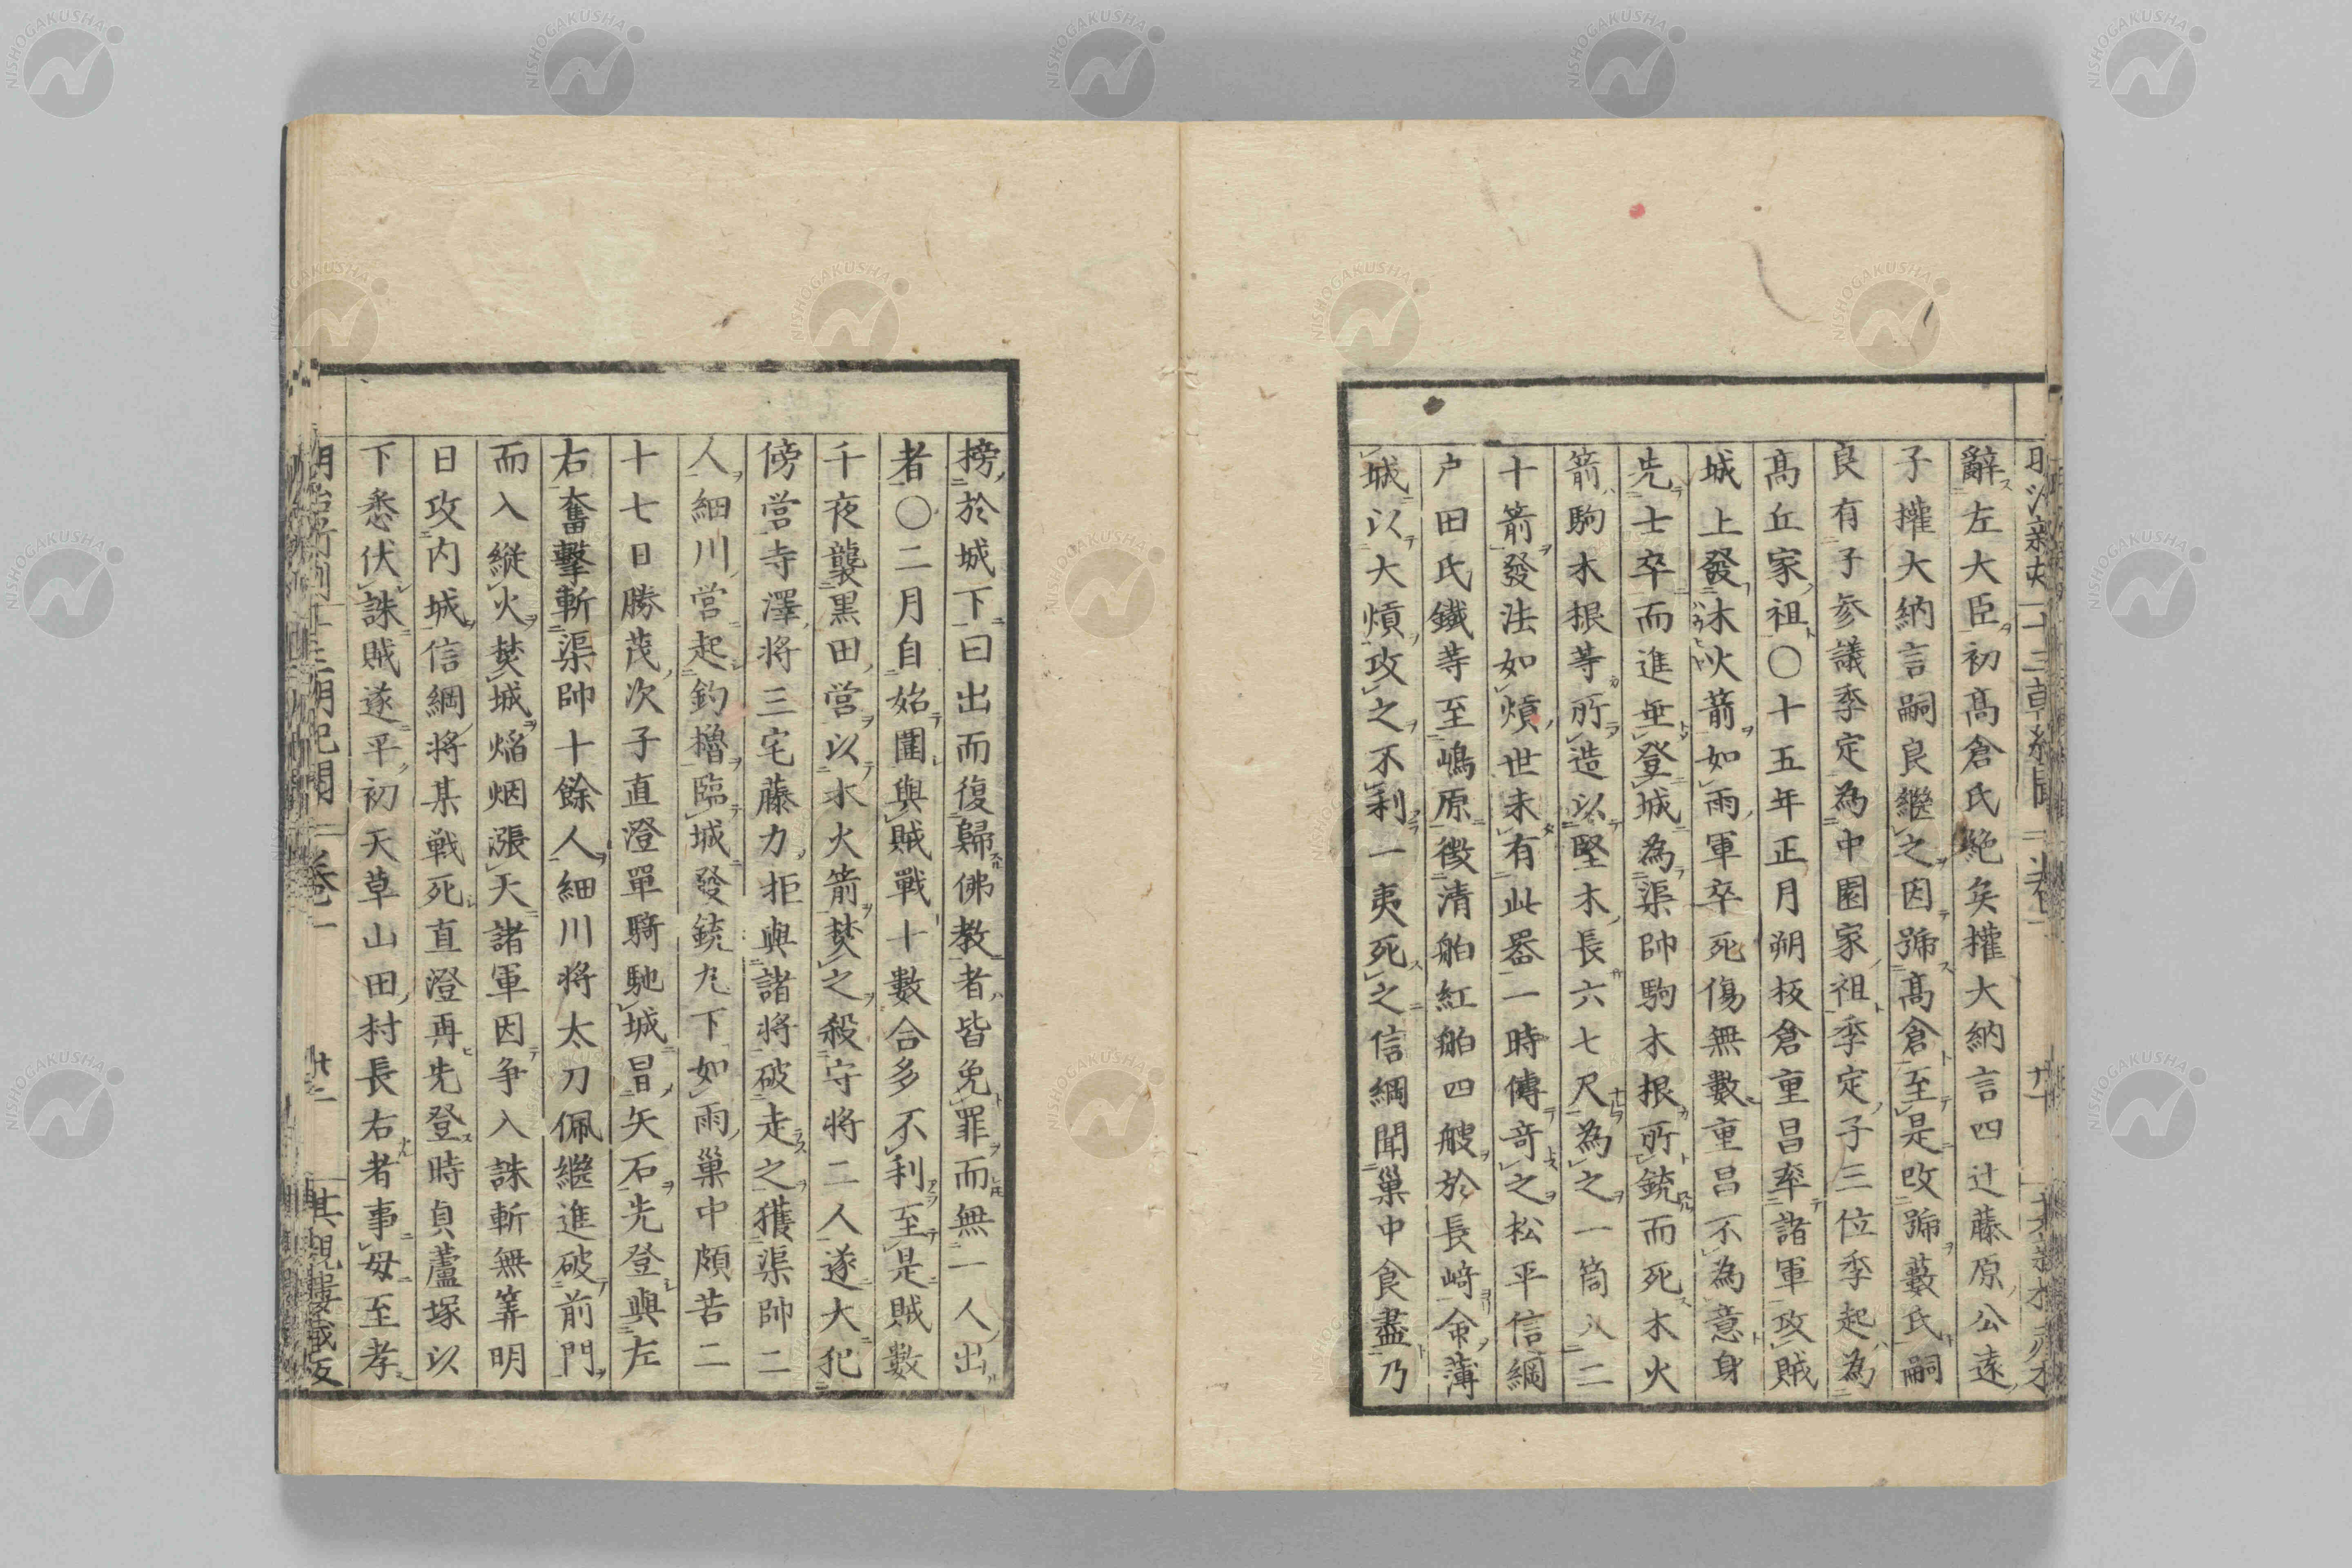 辭左大臣初髙倉氏絶矣權大納言四辻藤原公遠
子權大納言嗣良繼之因號髙倉至是改號藪氏嗣
良有子参議季定為中園家祖季定子三位季起為
髙丘家祖〇十五年正月朔板倉重昌率諸軍攻賊
城上發木火箭如雨軍卒死傷無數重昌不為意身
先士卒而進垂登城為渠帥駒木根所銃而死木火
箭駒木根等所造以堅木長六七尺為之一筒入二
十箭發法如熕世未有此器一時傳奇之松平信綱
户田氏鐵等至嶋原徴清舶紅舶四艘於長﨑命薄
城以大熕攻之不利一夷死之信綱聞巢中食盡乃
搒於城下曰出而復歸佛教者皆免罪而無一人出
者〇二月自始圍與賊戰十數合多不利至是賊數
千夜襲黒田營以氷火箭焚之殺守将二人遂大犯
傍営寺澤将三宅藤力拒與諸将破走之獲渠帥二
人細川営起釣櫓臨城發銃丸下如雨巢中頗苦二
十七日勝茂次子直澄單騎馳城冒矢石先登與左
右奮擊斬渠帥十餘人細川将太刀佩繼進破前門
而入縦火焚城焔烟漲天諸軍因争入誅斬無筭明
日攻内城信綱将某戦死直澄再先登時貞蘆塚以
下悉伏誅賊遂平初天草山田村長右者事母至孝